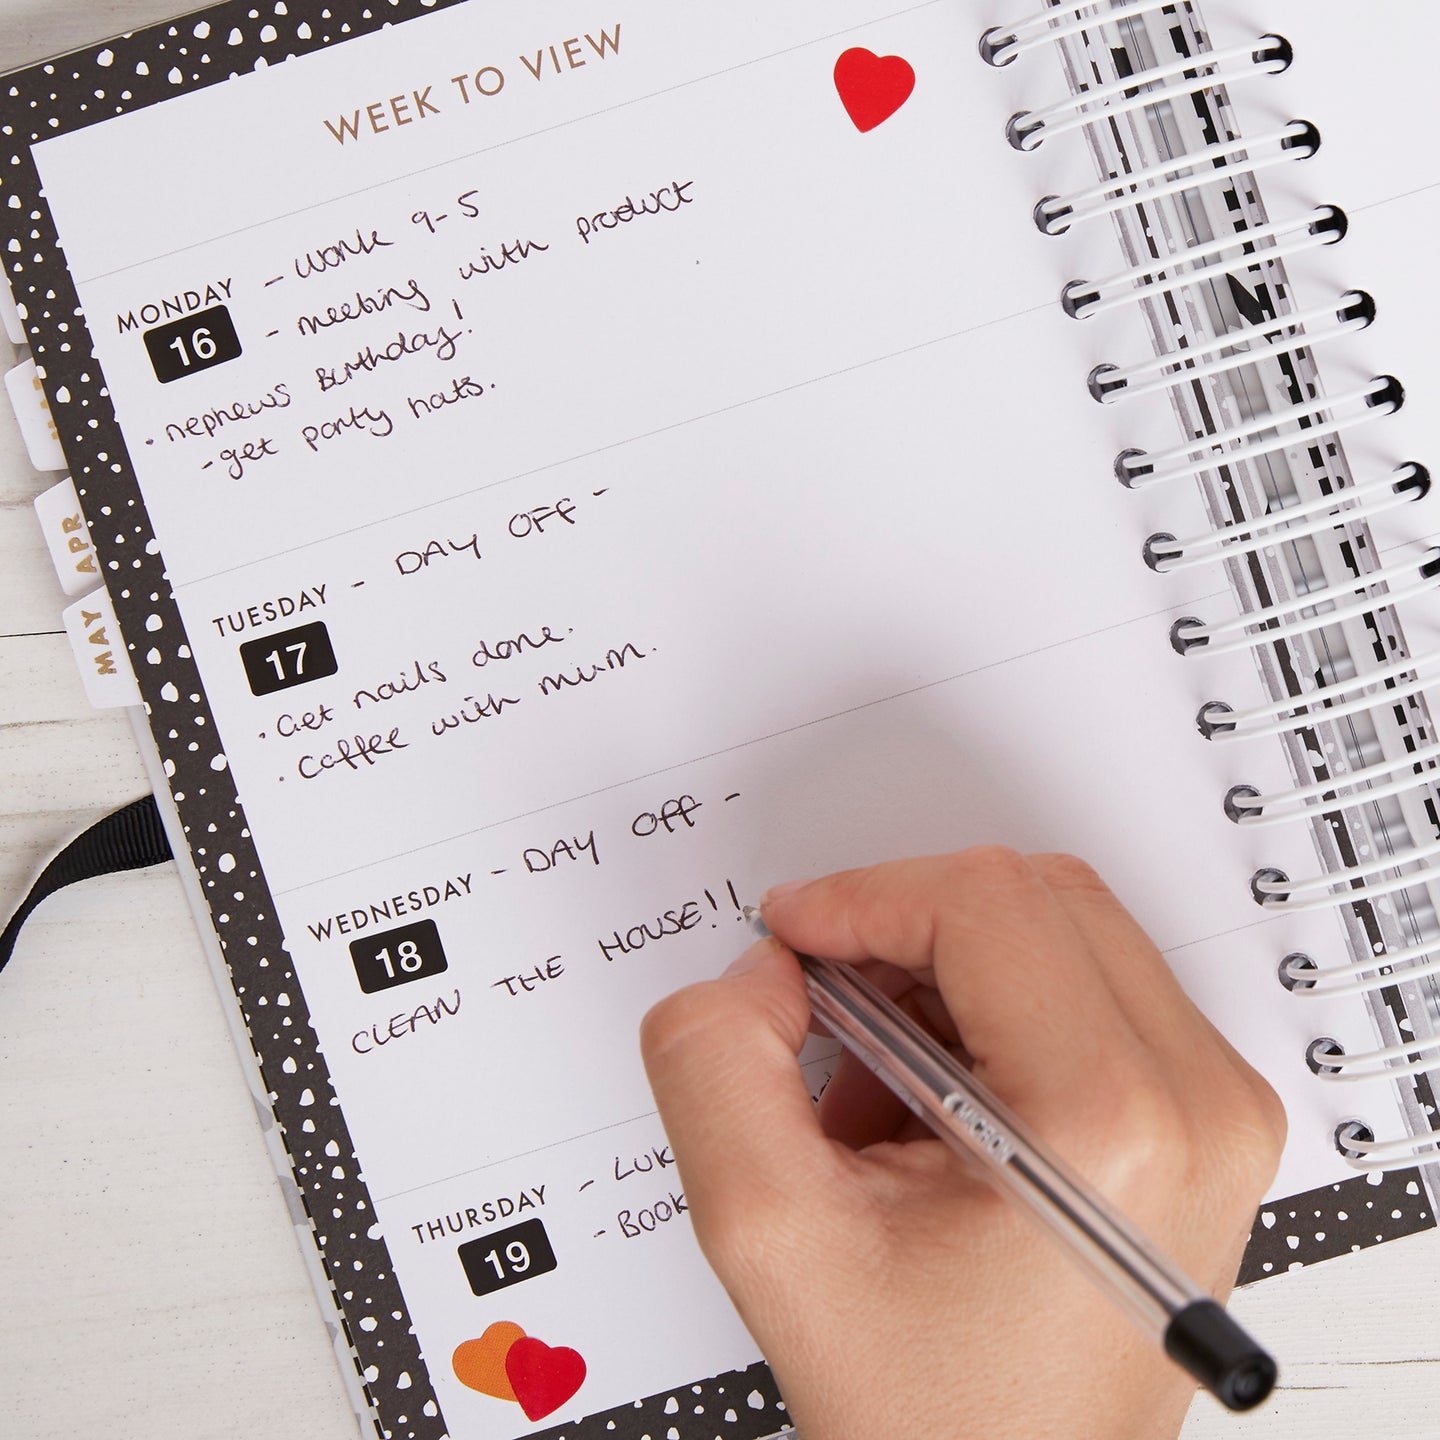 WEEK TO VIEW
MONDAY - Work 9-5
16 - meeting with product
• nephews Birthday!
- get party hats.
TUESDAY - DAY OFF -
17
• Get nails done.
• Coffee with mum.
WEDNESDAY - DAY OFF -
18
CLEAN THE HOUSE!!
THURSDAY - LUK
19 - BOOK
APR
MAY
MICRON